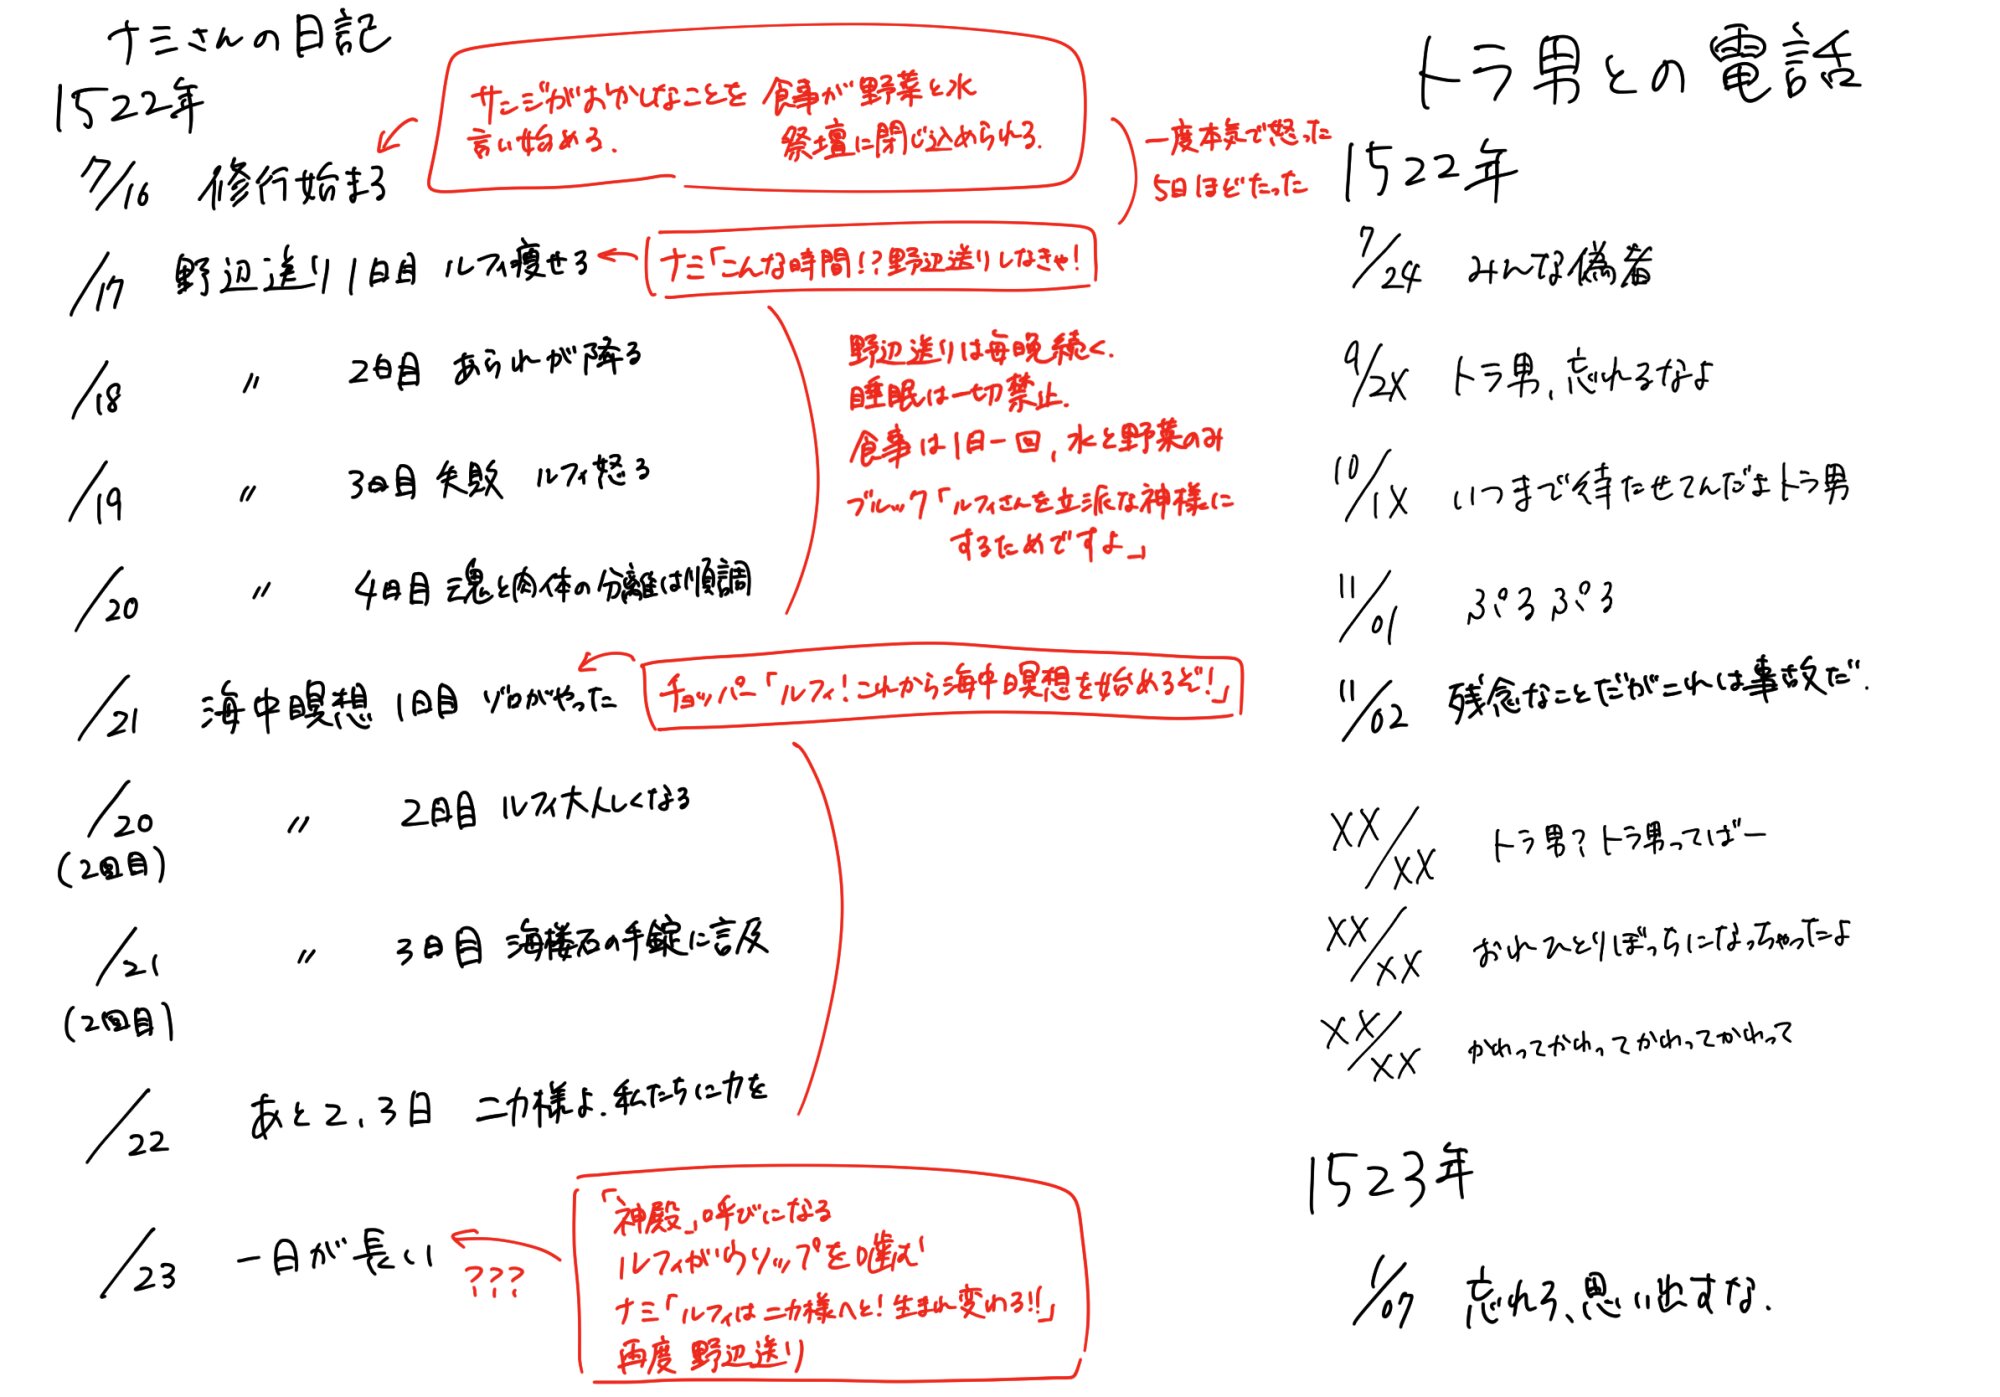 ナミさんの日記
1522年
サンジがおかしなことを
言い始める.
食事が野菜と水
祭壇に閉じ込められる.
7/16 修行始まる
一度本気で怒った
5日ほどたった
/17 野辺送り1日目 ルフィ痩せる
ナミ「こんな時間!?野辺送りしなきゃ!
/18 〃 2日目 あられが降る
野辺送りは毎晩続く.
睡眠は一切禁止.
食事は1日一回,水と野菜のみ
ブルック「ルフィさんを立派な神様に
するためですよ」
/19 〃 3日目 失敗 ルフィ怒る
/20 〃 4日目 魂と肉体の分離は順調
/21 海中瞑想 1日目 ゾロがやった
チョッパー「ルフィ!これから海中瞑想を始めるぞ!」
/20 〃 2日目 ルフィ大人しくなる
(2回目)
/21 〃 3日目 海楼石の手錠に言及
(2回目)
/22 あと2,3日 ニカ様よ.私たちに力を
/23 一日が長い
???
「神殿」呼びになる
ルフィがウソップを噛む
ナミ「ルフィはニカ様へと!生まれ変わる!!」
再度 野辺送り
トラ男との電話
1522年
7/24 みんな偽者
9/2X トラ男,忘れるなよ
10/1X いつまで待たせてんだよトラ男
11/01 ぷるぷる
11/02 残念なことだがこれは事故だ.
XX/XX トラ男?トラ男ってばー
XX/XX おれひとりぼっちになっちゃったよ
XX/XX かわってかわってかわってかわって
1523年
1/07 忘れろ、思い出すな.